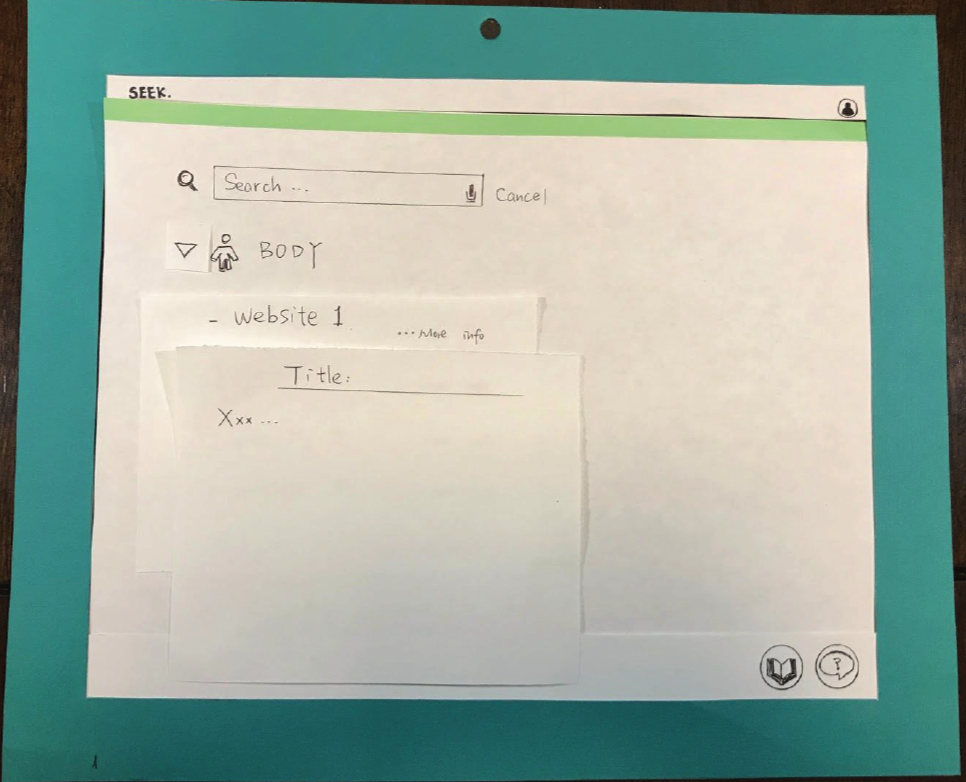 SEEK.
Search ...
Cancel
BODY
- Website 1
... More info
Title:
Xxx ...
?